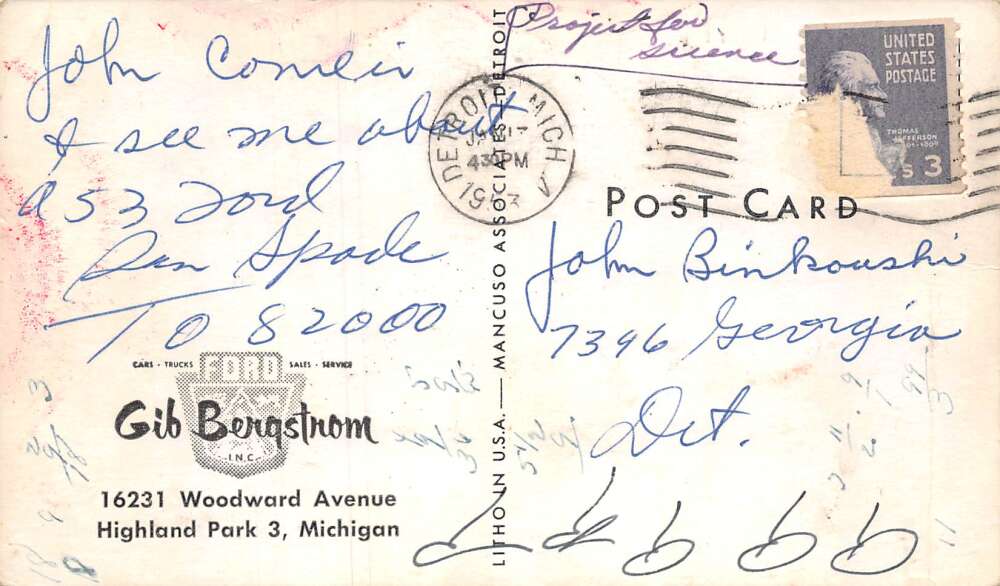 John Comeir
& see me about
a 53 Ford
Dan Spade
TO 82000
CARS - TRUCKS FORD SALES - SERVICE
Gib Bergstrom
INC.
16231 Woodward Avenue
Highland Park 3, Michigan
LITHO IN U.S.A. — MANCUSO ASSOCIATES-DETROIT
Project for
science
DETROIT, MICH. A
430PM
195
UNITED
STATES
POSTAGE
THOMAS
JEFFERSON
3
POST CARD
John Binkowski
7396 Georgia
Det.